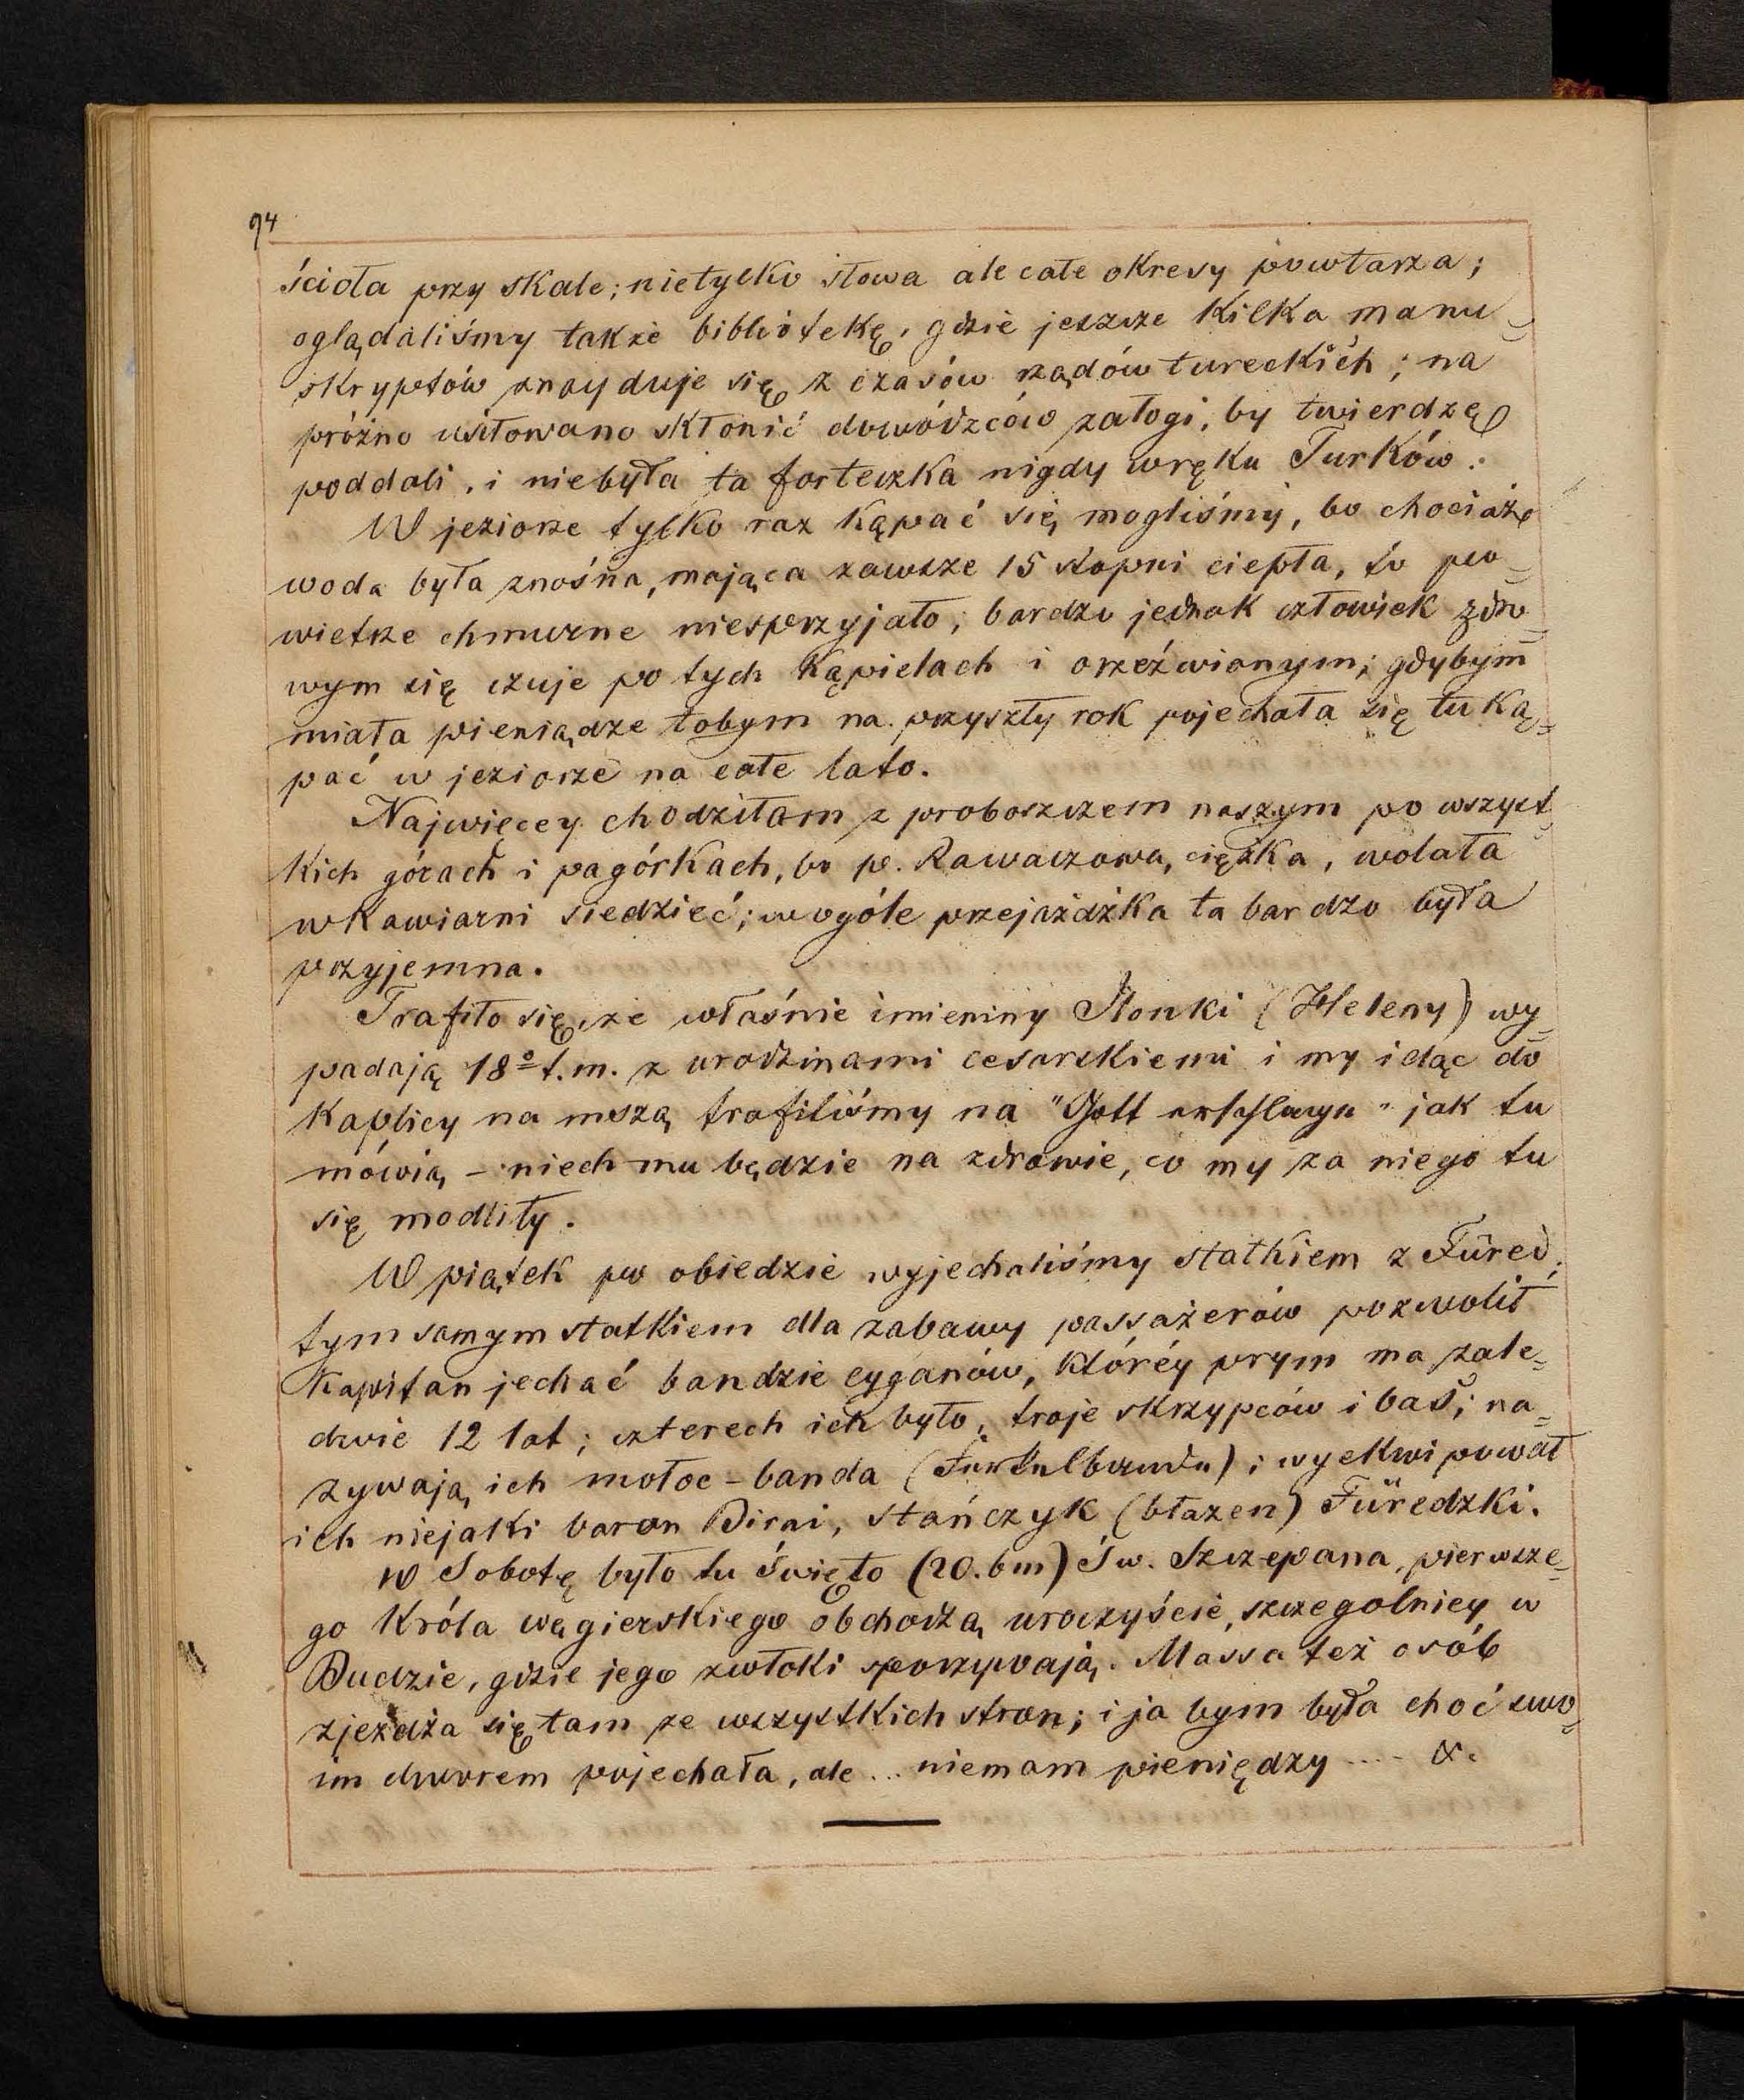 94
ścioła przy skale; nietylko słowa ale całe okresy powtarza;
oglądaliśmy także bibliotekę, gdzie jeszcze kilka manu-
skryptów znayduje się z czasów rządów tureckich; na
próżno usiłowano skłonić dowódzców załogi, by twierdzę
poddali, i niebyła ta forteczka nigdy wręku Turków.
W jeziorze tylko raz kąpać się mogliśmy, bo chociaż
woda była znośna, mająca zawsze 15 stopni ciepła, to po-
wietrze chmurne niesprzyjało; bardzo jednak człowiek zdro-
wym się czuje po tych kąpielach i orzeźwionym; gdybym
miała pieniądze tobym na przyszły rok pojechała się tu ką-
pać w jeziorze na całe lato.
Najwięcey chodziłam z proboszczem naszym po wszyst-
kich górach i pagórkach, bo p. Rawaczowa, ciężka, wolała
wkawiarni siedzieć; wogóle przejażdżka ta bardzo była
przyjemna.
Trafiło się, że właśnie imieniny Ilonki (Heleny) wy-
padają 18º t.m. z urodzinami cesarskiemi i my idąc do
kaplicy na mszą trafiliśmy na "Gott erhaltayn" jak tu
mówią – niech mu będzie na zdrowie, co my za niego tu
się modliły.
W piątek po obiedzie wyjechaliśmy statkiem z Füred,
tym samym statkiem dla zabawy passażerów pozwolił
Kapitan jechać bandzie cyganów, któréy prym ma zale-
dwie 12 lat; czterech ich było, troje skrzypców i bas; na-
zywają ich małoc-banda (Ferkelbanda); wyekwipował
ich niejaki baron Dirai, Stańczyk (błazen) Füredzki.
W Sobotę było tu święto (20. bm) Św. Szczepana, pierwsze-
go Króla węgierskiego obchodzą uroczyście, szczegolniey w
Budzie, gdzie jego zwłoki spoczywają. Massa też osób
zjeżdża się tam ze wszystkich stron; i ja bym była choć swo-
im dworem pojechała, ale ... niemam pieniędzy .... &.